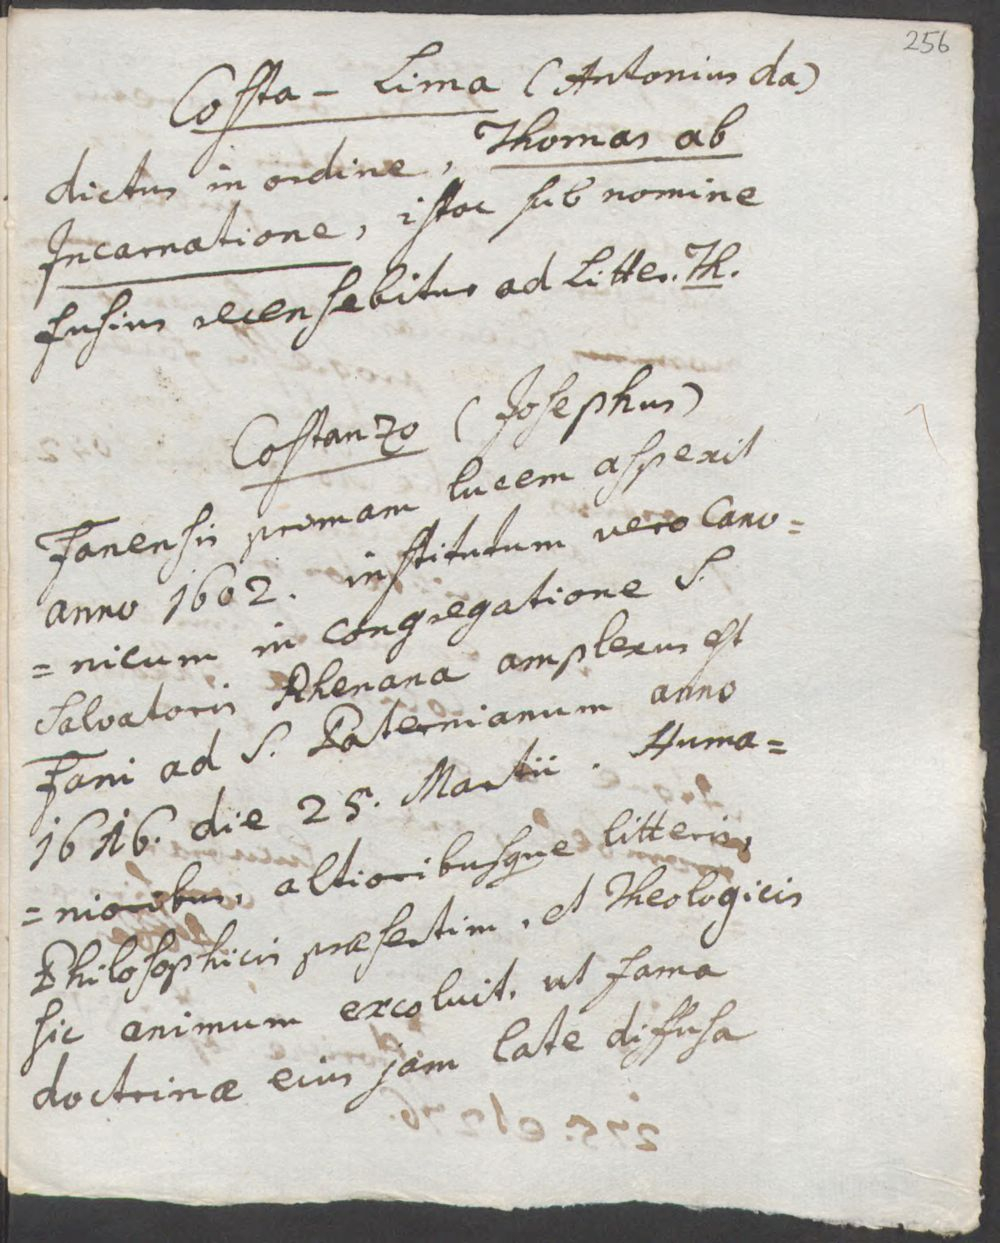 256
Costa - Lima (Antonius da)
dictus in ordine, Thomas ab
Incarnatione, istoc sub nomine
fusius recensebitur ad Litter. Th.
Costanzo (Josephus)
Fanensis primam lucem aspexit
anno 1602. institutum vero Cano=
=nicum in congregatione S.
Salvatoris Rhenana amplexus est
Fani ad S. Paternianum anno
1616. die 25. Martii. Huma=
=nioribus, altioribusque litteris,
Philosophicis præsertim, et Theologicis
sic animum excoluit, ut fama
doctrinæ eius jam late diffusa